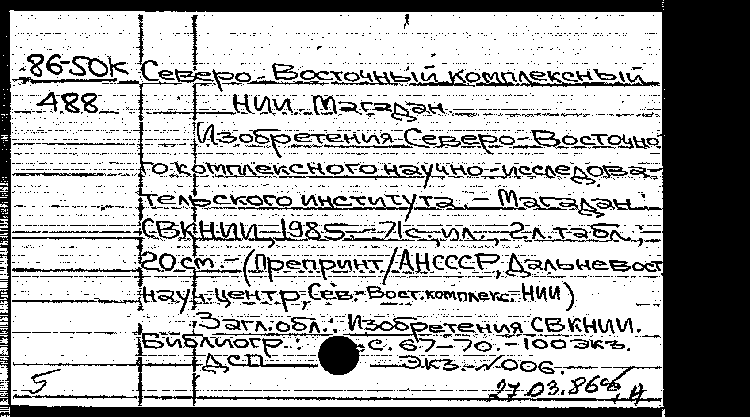 86-50К Северо-Восточный комплексный
488 НИИ. Магадан
Изобретения Северо-Восточно
го комплексного научно-исследова-
тельского института. - Магадан:
СВКНИИ, 1985. - 71 с., ил., 2 л. табл.;
20 см. - (Препринт/АНСССР, Дальневост
науч. центр, Сев.-Вост. комплекс. НИИ)
Загл. обл.: Изобретения СВКНИИ.
Библиогр.: с. 67-70. - 100 экз.
ДСП Экз. №006.
5 27.03.86